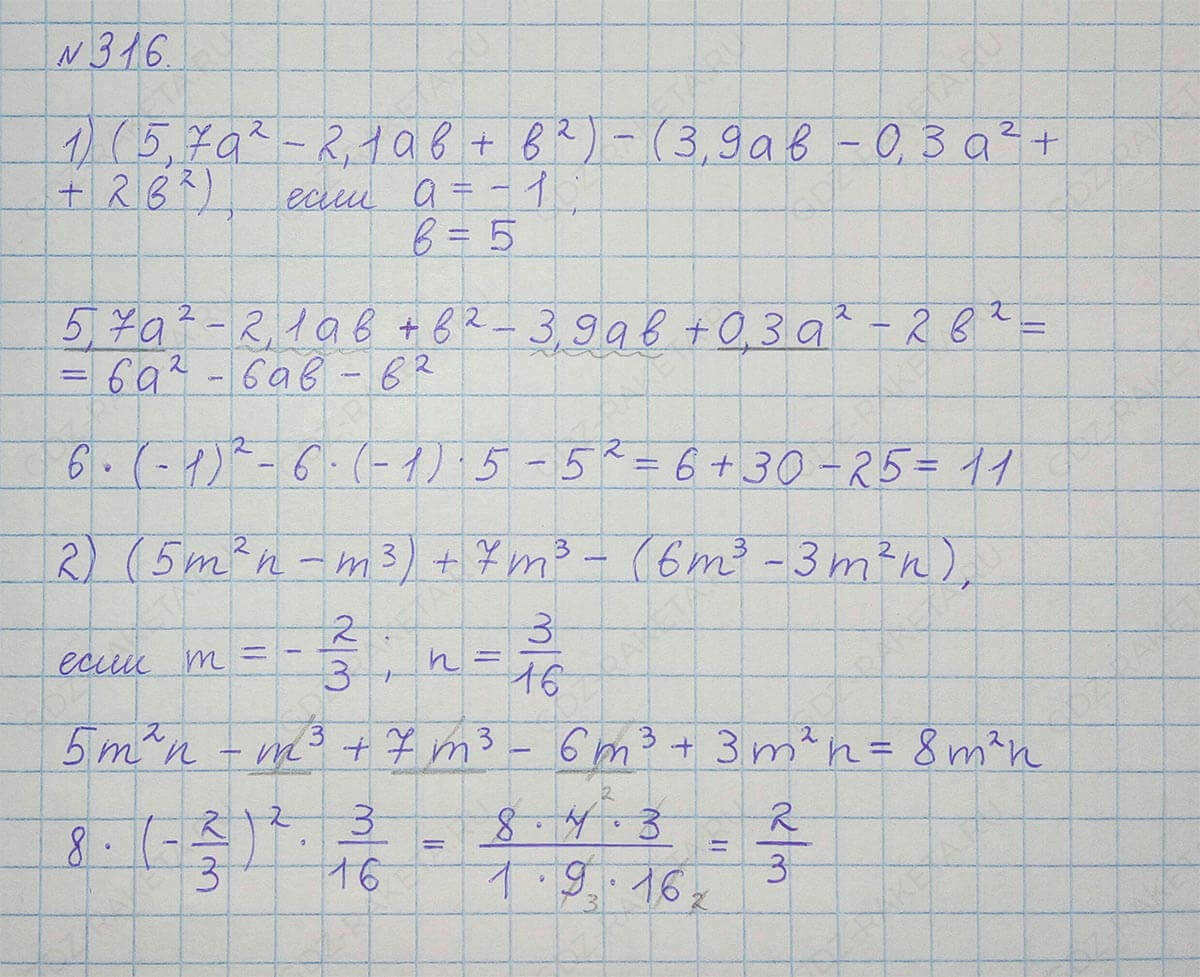 №316.
1) (5,7a² - 2,1ab + b²) - (3,9ab - 0,3a² +
+ 2b²), если a = -1;
b = 5
5,7a² - 2,1ab + b² - 3,9ab + 0,3a² - 2b² =
= 6a² - 6ab - b²
6 · (-1)² - 6 · (-1) · 5 - 5² = 6 + 30 - 25 = 11
2) (5m²n - m³) + 7m³ - (6m³ - 3m²n),
если m = -2/3; n = 3/16
5m²n - m³ + 7m³ - 6m³ + 3m²n = 8m²n
8 · (-2/3)² · 3/16 = (8 · 4 2 · 3)/(1 · 9 3 · 16 2) = 2/3
GDZ-RAKETA.RU